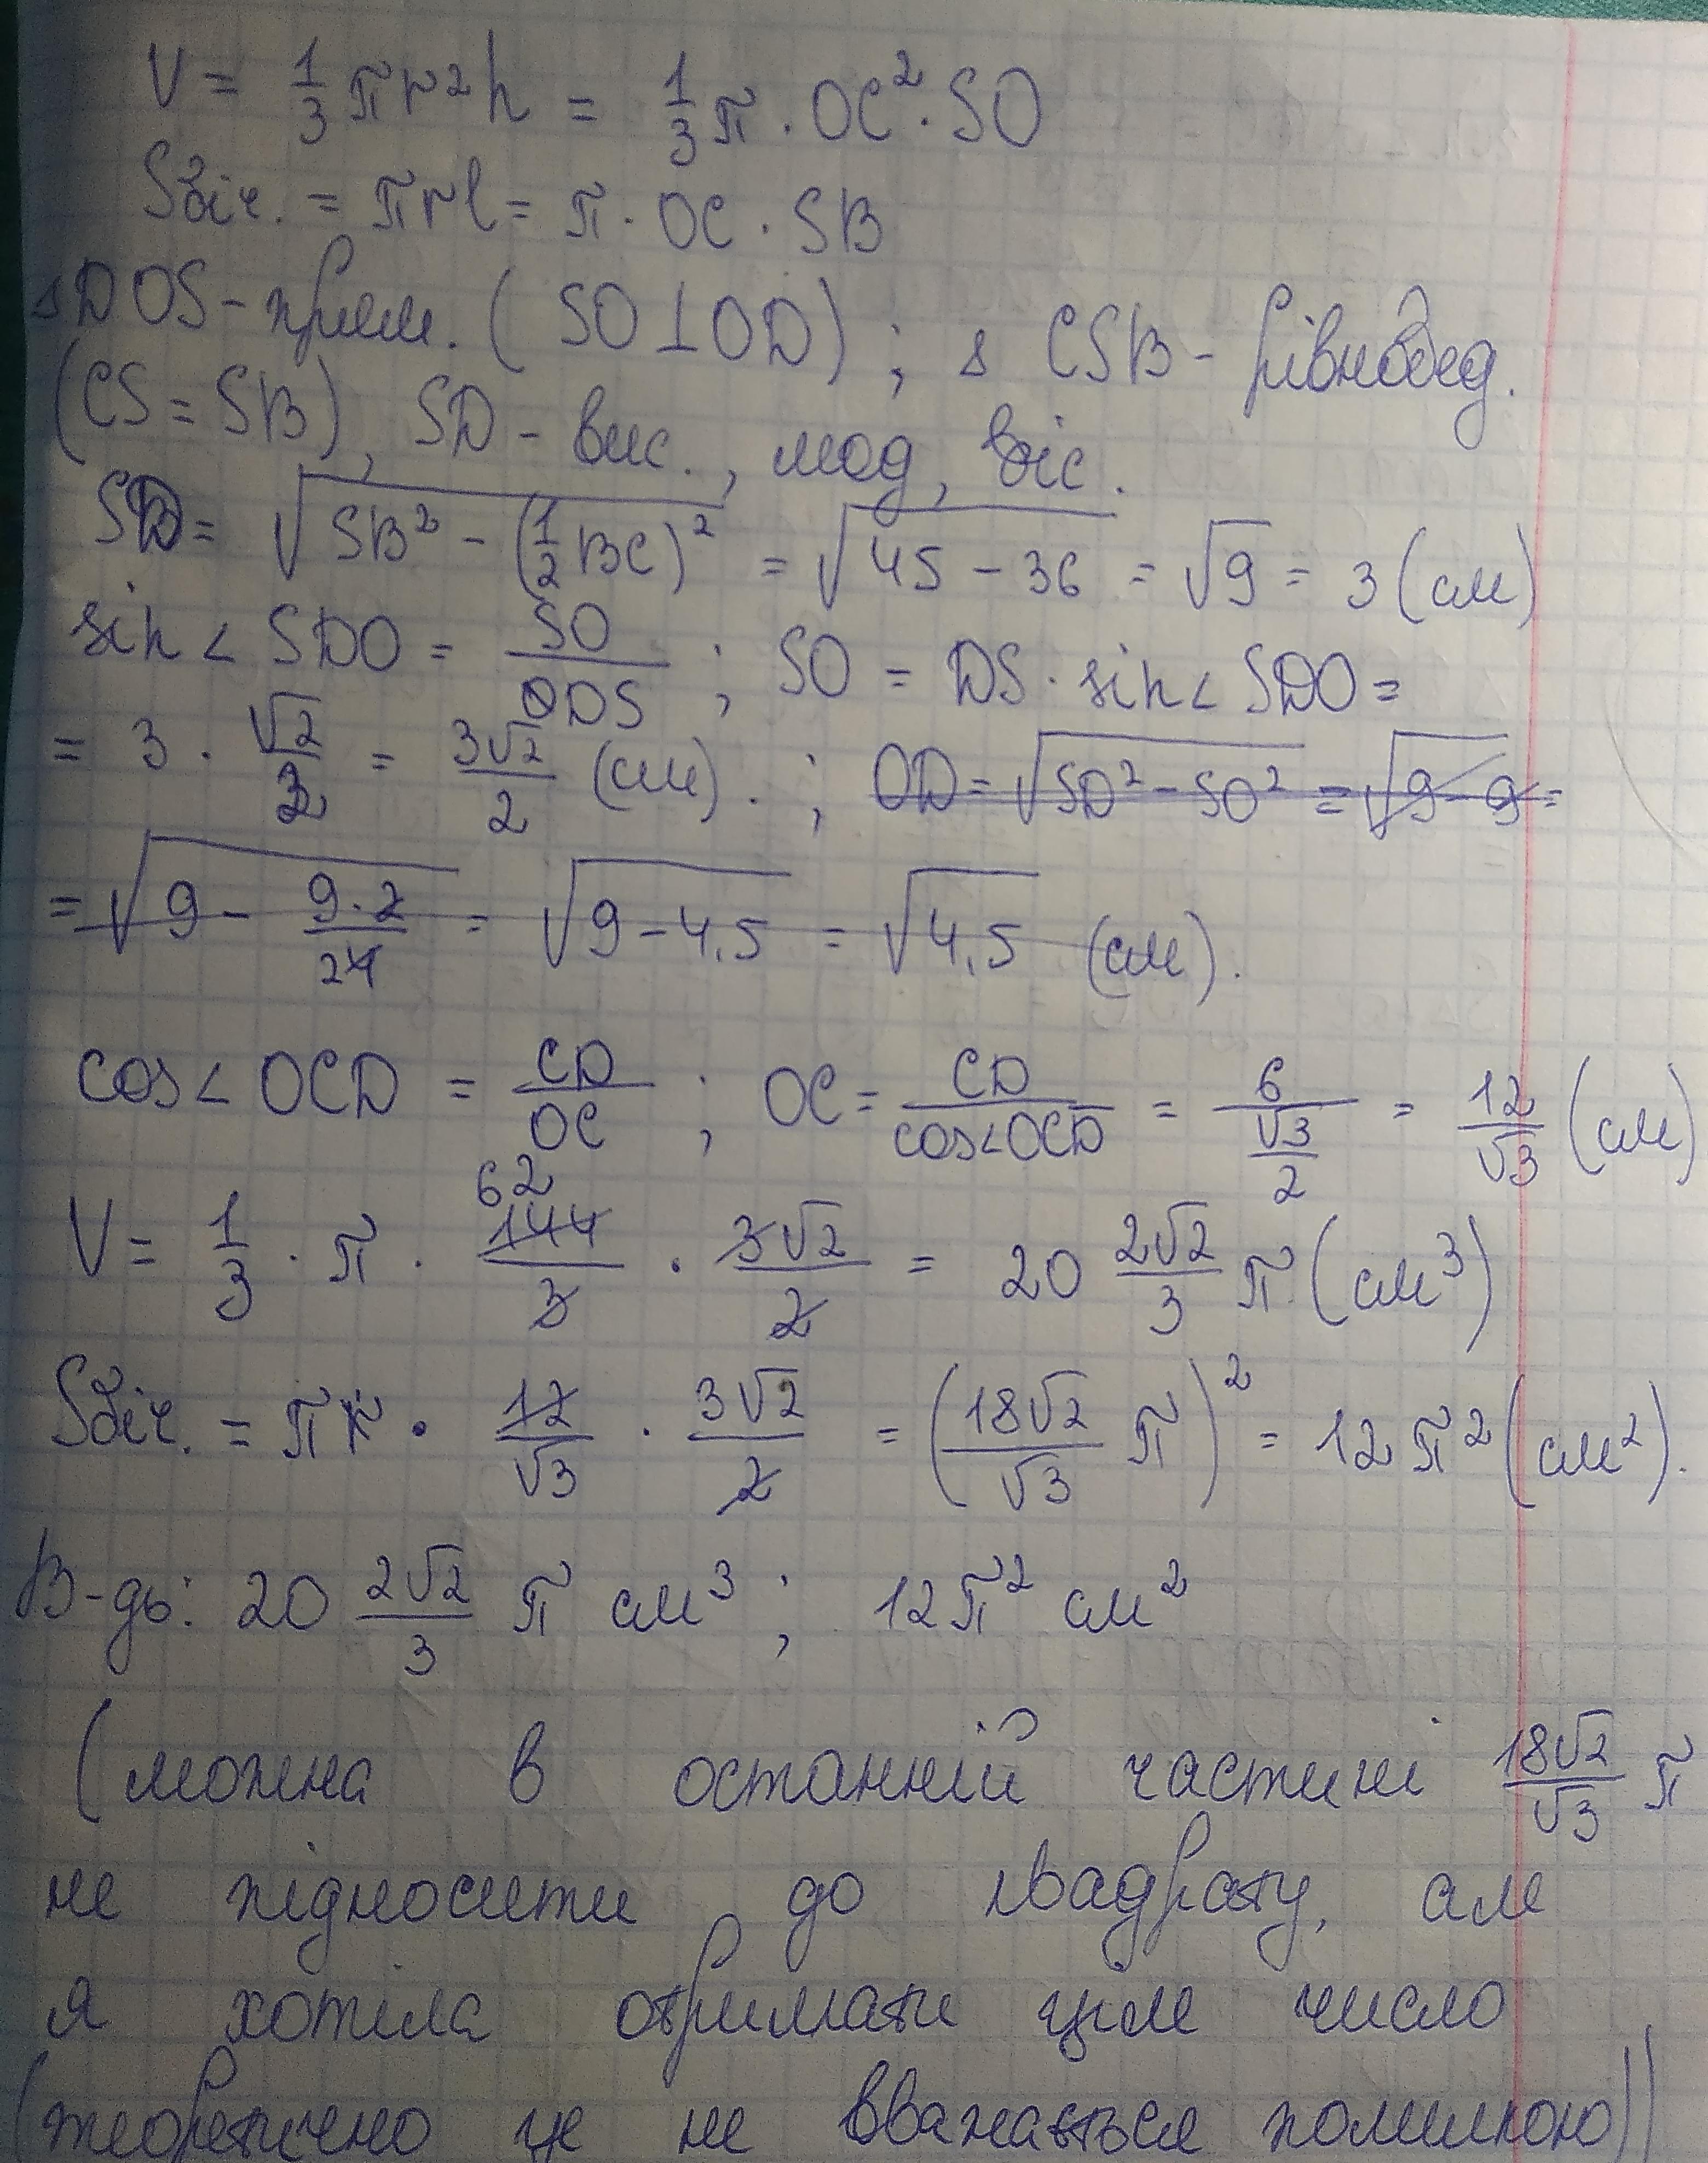 V = 1/3 πr²h = 1/3 π · OC² · SO
Sбіч. = πrl = π · OC · SB
△DOS - прям. (SO⊥OD); △ CSB - рівнобед.
(CS = SB), SD - вис., мед, біс.
SD = √(SB² - (1/2 BC)²) = √(45 - 36) = √9 = 3 (см)
sin∠SDO = SO/DS ; SO = DS · sin∠SDO =
= 3 · √2/2 = 3√2/2 (см). ; OD = √(SD² - SO²) = √(9 - 9 =
= √(9 - 9·2/24) = √(9 - 4,5) = √4,5 (см).
cos∠OCD = CD/OC ; OC = CD/cos∠OCD = 6/(√3/2) = 12/√3 (см)
62
V = 1/3 · π · 144/3 · 3√2/2 = 20 2√2/3 π (см³)
Sбіч. = πr · 12/√3 · 3√2/2 = (18√2/√3 π)² = 12π² (см²).
В-дь: 20 2√2/3 π см³ ; 12π² см²
(можна в останній частині 18√2/√3 π
не підносити до квадрату, але
я хотіла отримати ціле число
(теоретично це не вважається помилкою))